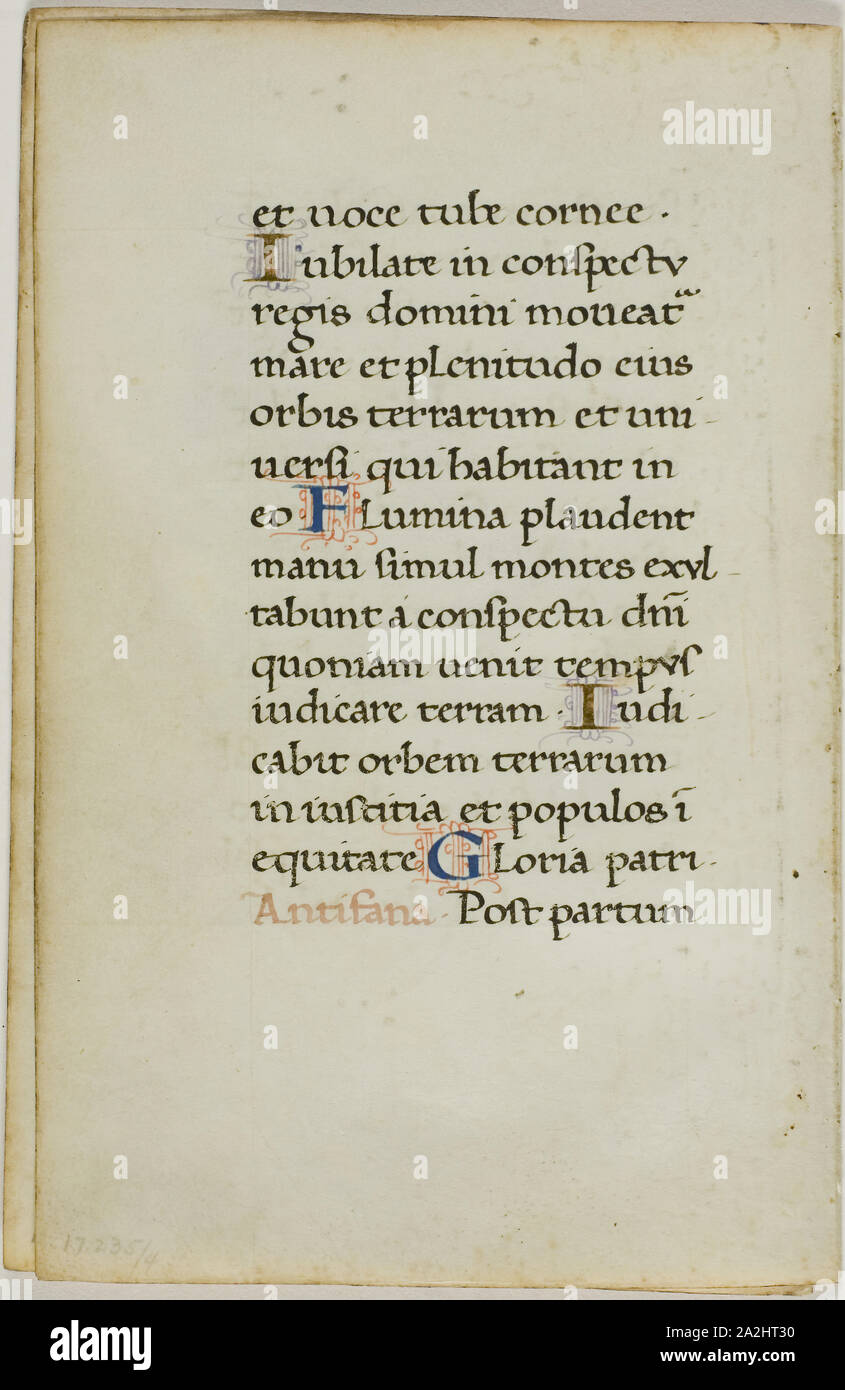 et uoce tube cornee ·
Iubilate in conſpectv
regis domini moueatᷓ
mare et plenitudo eius
orbis terrarum et uni-
uerſi qui habitant in
eo FLumina plaudent
manu ſimul montes exvl-
tabunt a conſpectu dn̄i
quoniam uenit tempvſ
iudicare terram · Iudi-
cabit orbem terrarum
in iuſtitia et populos ī
equitate GLoria patri·
Antifana· Poſt partum
17.235/4
alamy
a
Image ID: 2A2HT30
www.alamy.com